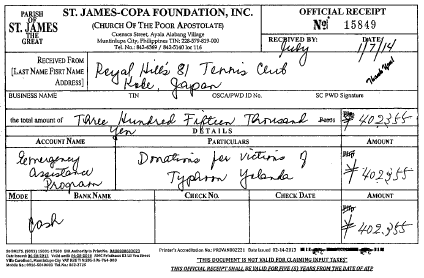 PARISH OF ST. JAMES THE GREAT
ST. JAMES-COPA FOUNDATION, INC.
(CHURCH OF THE POOR APOSTOLATE)
Cuenca Street, Ayala Alabang Village
Muntinlupa City, Philippines TIN: 228-579-819-000
Tel. No.: 842-4369 / 842-5140 loc 116
OFFICIAL RECEIPT
No. 15849
RECEIVED BY: DATE:
July 1/7/14
Thank You!
RECEIVED FROM
[LAST NAME FIRST NAME
ADDRESS]
Royal Hill's 81 Tennis Club
Kobe, Japan
BUSINESS NAME TIN OSCA/PWD ID No. SC PWD Signature
the total amount of Three Hundred Fifteen Thousand Pesos 402355
Yen
DETAILS
ACCOUNT NAME PARTICULARS
Emergency Assistance Program
Donations for Victims of Typhoon Yolanda
402,355
MODE BANK NAME CHECK NO. CHECK DATE
Cash
402,355
"THIS DOCUMENT IS NOT VALID FOR CLAIMING INPUT TAXES"
THIS OFFICIAL RECEIPT SHALL BE VALID FOR FIVE (5) YEARS FROM THE DATE OF ATP